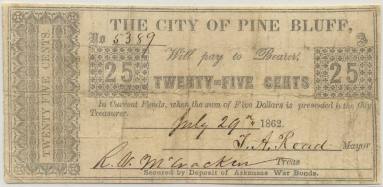 THE CITY OF PINE BLUFF,
No 5389
Will pay to Bearer,
25 TWENTY-FIVE CENTS 25
In Current Funds, when the sum of Five Dollars is presented to the City
Treasurer.
July 29th 1862.
Mayor
R. W. McCracken Treas
Secured by Deposit of Arkansas War Bonds.
TWENTY FIVE CENTS.